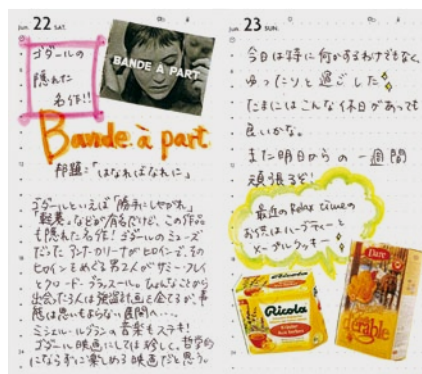 Jun. 22 SAT.
ゴダールの
隠れた
名作!!
BANDE À PART
Bande à part
邦題:「はなればなれに」
ゴダールといえば「勝手にしやがれ」
「軽蔑」などが有名だけど、この作品
も隠れた名作!ゴダールのミューズ
だったアンナ・カリーナがヒロインで、その
ヒロインをめぐる男2人がサミー・フレイ
とクロード・ブラッスール。ひょんなことから
出会った3人は強盗計画を企てるが、事
態は思いもよらない展開へ…
ミシェル・ルグランの音楽もステキ!
ゴダール映画にしては珍しく、哲学的
にならずに楽しめる映画だと思う。
Jun. 23 SUN.
今日は特に何かするわけでもなく、
ゆったりと過ごした
たまにはこんな休日があっても
良いかな。
また明日からの一週間
頑張るぞ!
最近のRelax timeの
お供はハーブティーと
メープルクッキー
Ricola
Dare
érable